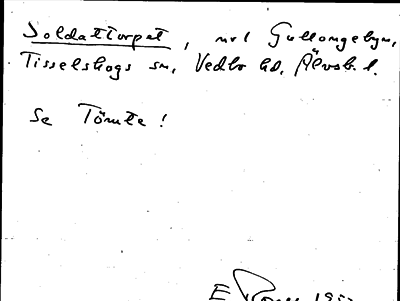 Soldattorpet, u.l Gullomgebyn,
Tisselskogs sn, Vedbo hd, Älvsb. l.
Se Tömte!
E